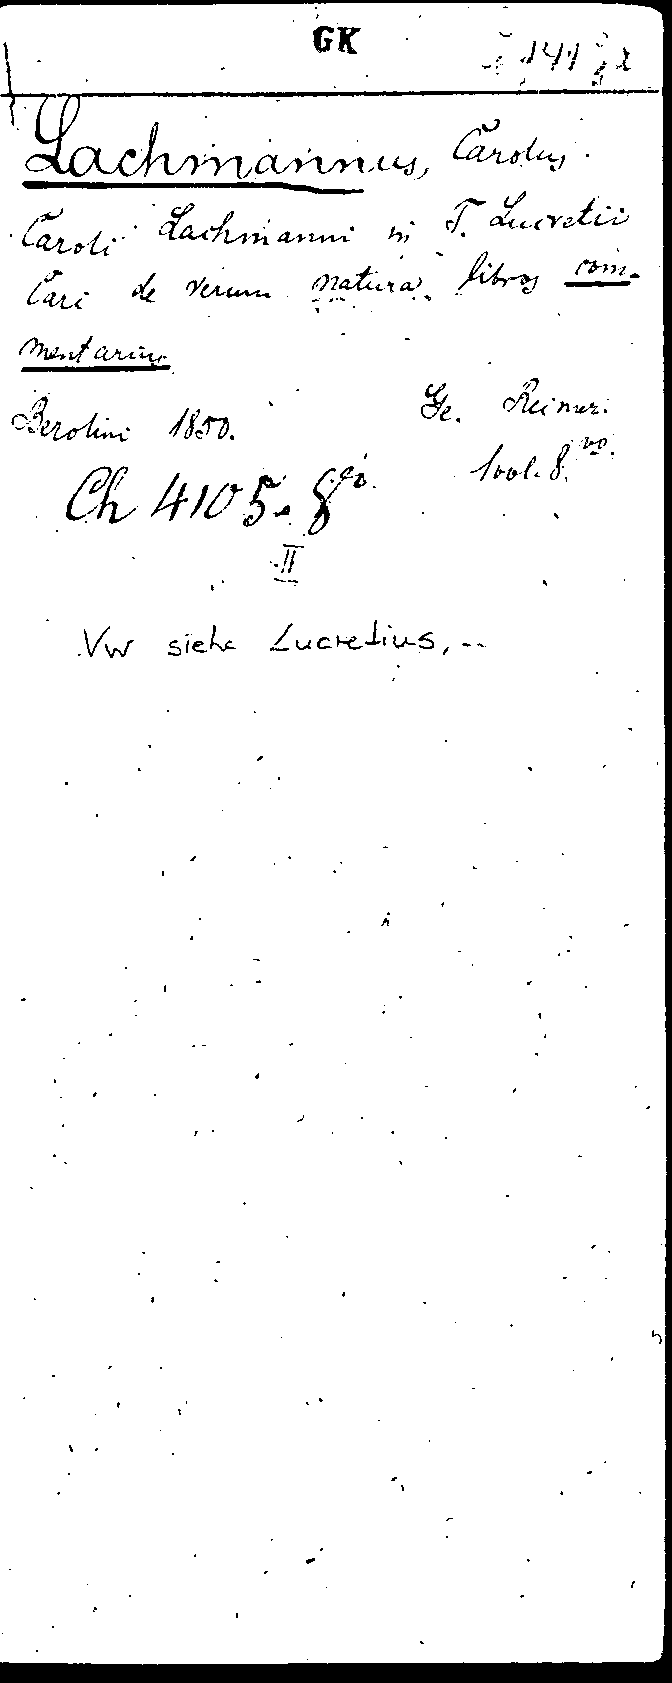 GK
Lachmannus, Carolus.
Caroli Lachmanni in T. Lucretii
Cari de rerum natura libros com-
mentarius
Berolini 1850. Ge. Reimer.
1 vol. 8.vo.
Ch 4105. 8vo.
II
Vw siehe Lucretius,..